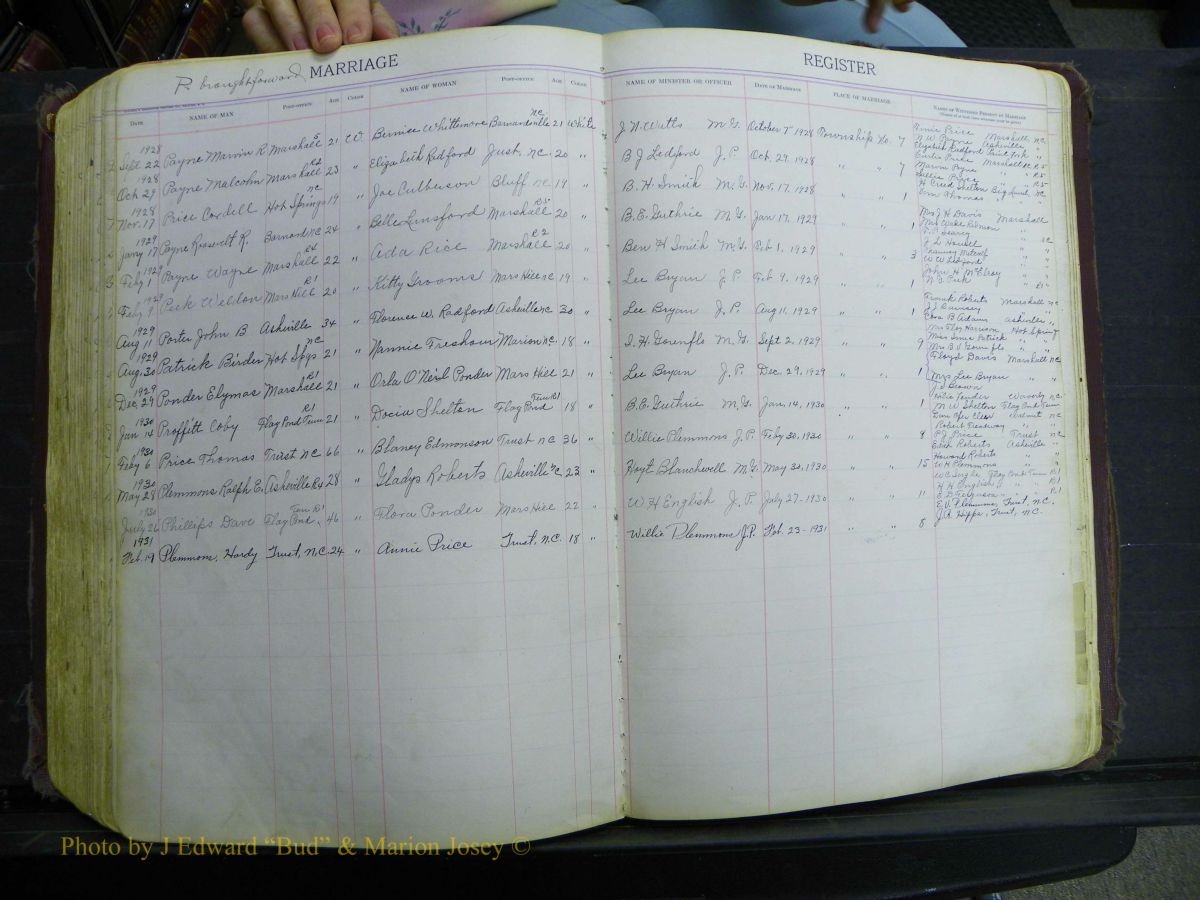 P. brought forward MARRIAGE REGISTER
DATE NAME OF MAN POST-OFFICE AGE COLOR NAME OF WOMAN POST-OFFICE AGE COLOR NAME OF MINISTER OR OFFICER DATE OF MARRIAGE PLACE OF MARRIAGE NAMES OF WITNESSES PRESENT AT MARRIAGE
1928 Sept. 22 Payne Marvin R. Marshall 5 21 W Bernice Whittemore Barnardsville NC 21 White J. N. Watts M.G. October 7" 1928 Township No. 7 Price Marshall NC
N.W. Payne Asheville
1928 Oct 29 Payne Malcolm Marshall R2 23 " Elizabeth Redford Just, NC. 20 " B J Ledford J.P. Oct. 29. 1928 " " 7 Elizabeth Redford
Marshall R5
Marvin Payne " R5
1928 Nov. 17 Price Cordell Hot Springs NC 19 " Joe Culberson Bluff NC 19 " B. H. Smith M.G. Nov. 17, 1928 " " 1 H Creed Shelton NC
Thomas " "
1929 Jany 17 Payne Roosevelt R. Barnard NC 24 " Belle Lunsford Marshall R5 20 " B. E. Guthrie M.G. Jan 17. 1929 " " 1 Mrs J H Davis Marshall
1929 Feby 1 Payne Wayne Marshall R4 22 " Ada Rice Marshall R2 20 " Ben H Smith M.G. Feb 1. 1929 " " 3 J L Housell
W W Ledford "
1929 Feby 9 Peek Weldon Mars Hill R1 20 " Kitty Grooms Mars Hill NC 19 " Lee Bryan J.P. Feb 9. 1929 " " 1 John H McElroy "
N. S. Peek " R1
1929 Aug 11 Porter John B Asheville 34 " Florence W. Radford Asheville NC 30 " Lee Bryan J.P. Aug 11. 1929 " " 1 Frank Roberts Marshall NC
J J Ramsey
B Adams Asheville "
1929 Aug. 30 Patrick Birder Hot Spgs NC 21 " Nannie Freshour Marion NC. 18 " I. H. Gorenflo M.G. Sept 2. 1929 " " 9 Mrs Floy Harrison Hot Springs
Miss Inie Patrick " "
Mrs B. S. Gorenflo " "
1929 Dec, 29 Ponder Elymas Marshall R1 21 " Orla O'Neil Ponder Mars Hill 21 " Lee Bryan J.P. Dec, 29, 1929 " " 1 Floyd Davis Marshall NC
Mrs Lee Bryan " "
J S Brown
1930 Jan 14 Proffitt Coby Flag Pond Tenn R1 21 " Docia Shelton Flag Pond Tenn R1 18 " B.E. Guthrie M.G. Jan, 14, 1930 " " 1 Ponder NC
M W Shelton Flag Pond Tenn
Walnut NC
1930 Feby 6 Price Thomas Trust NC 66 " Blaney Edmonson Trust NC 36 " Willie Plemmons J.P. Feby 30, 1930 " " 9 Robert Treadway " "
P.J. Price Trust NC
1930 May 28 Plemmons Ralph E. Asheville R4 28 " Gladys Roberts Asheville NC 23 " Hoyt Blanchwell M.G. May 30, 1930 " " 15 Roberts Asheville "
Howard Roberts " "
W H Plemmons " "
1930 July 26 Phillips Dave Flag Pond, Tenn R1 46 " Flora Ponder Mars Hill 22 " W H English J.P. July 27-1930 " " 11 Flag Pond Tenn R1
H H English " R1
E D Ferguson " "
1931 Feb. 19 Plemmons, Hardy Trust, N.C 24 " Annie Price Trust, N.C. 18 " Willie Plemmons J.P. Feb. 23-1931 " " 8 E.V. Plemmons, Trust, N.C.
J.R. Hipps, Trust, N.C.
Photo by J Edward "Bud" & Marion Josey ©